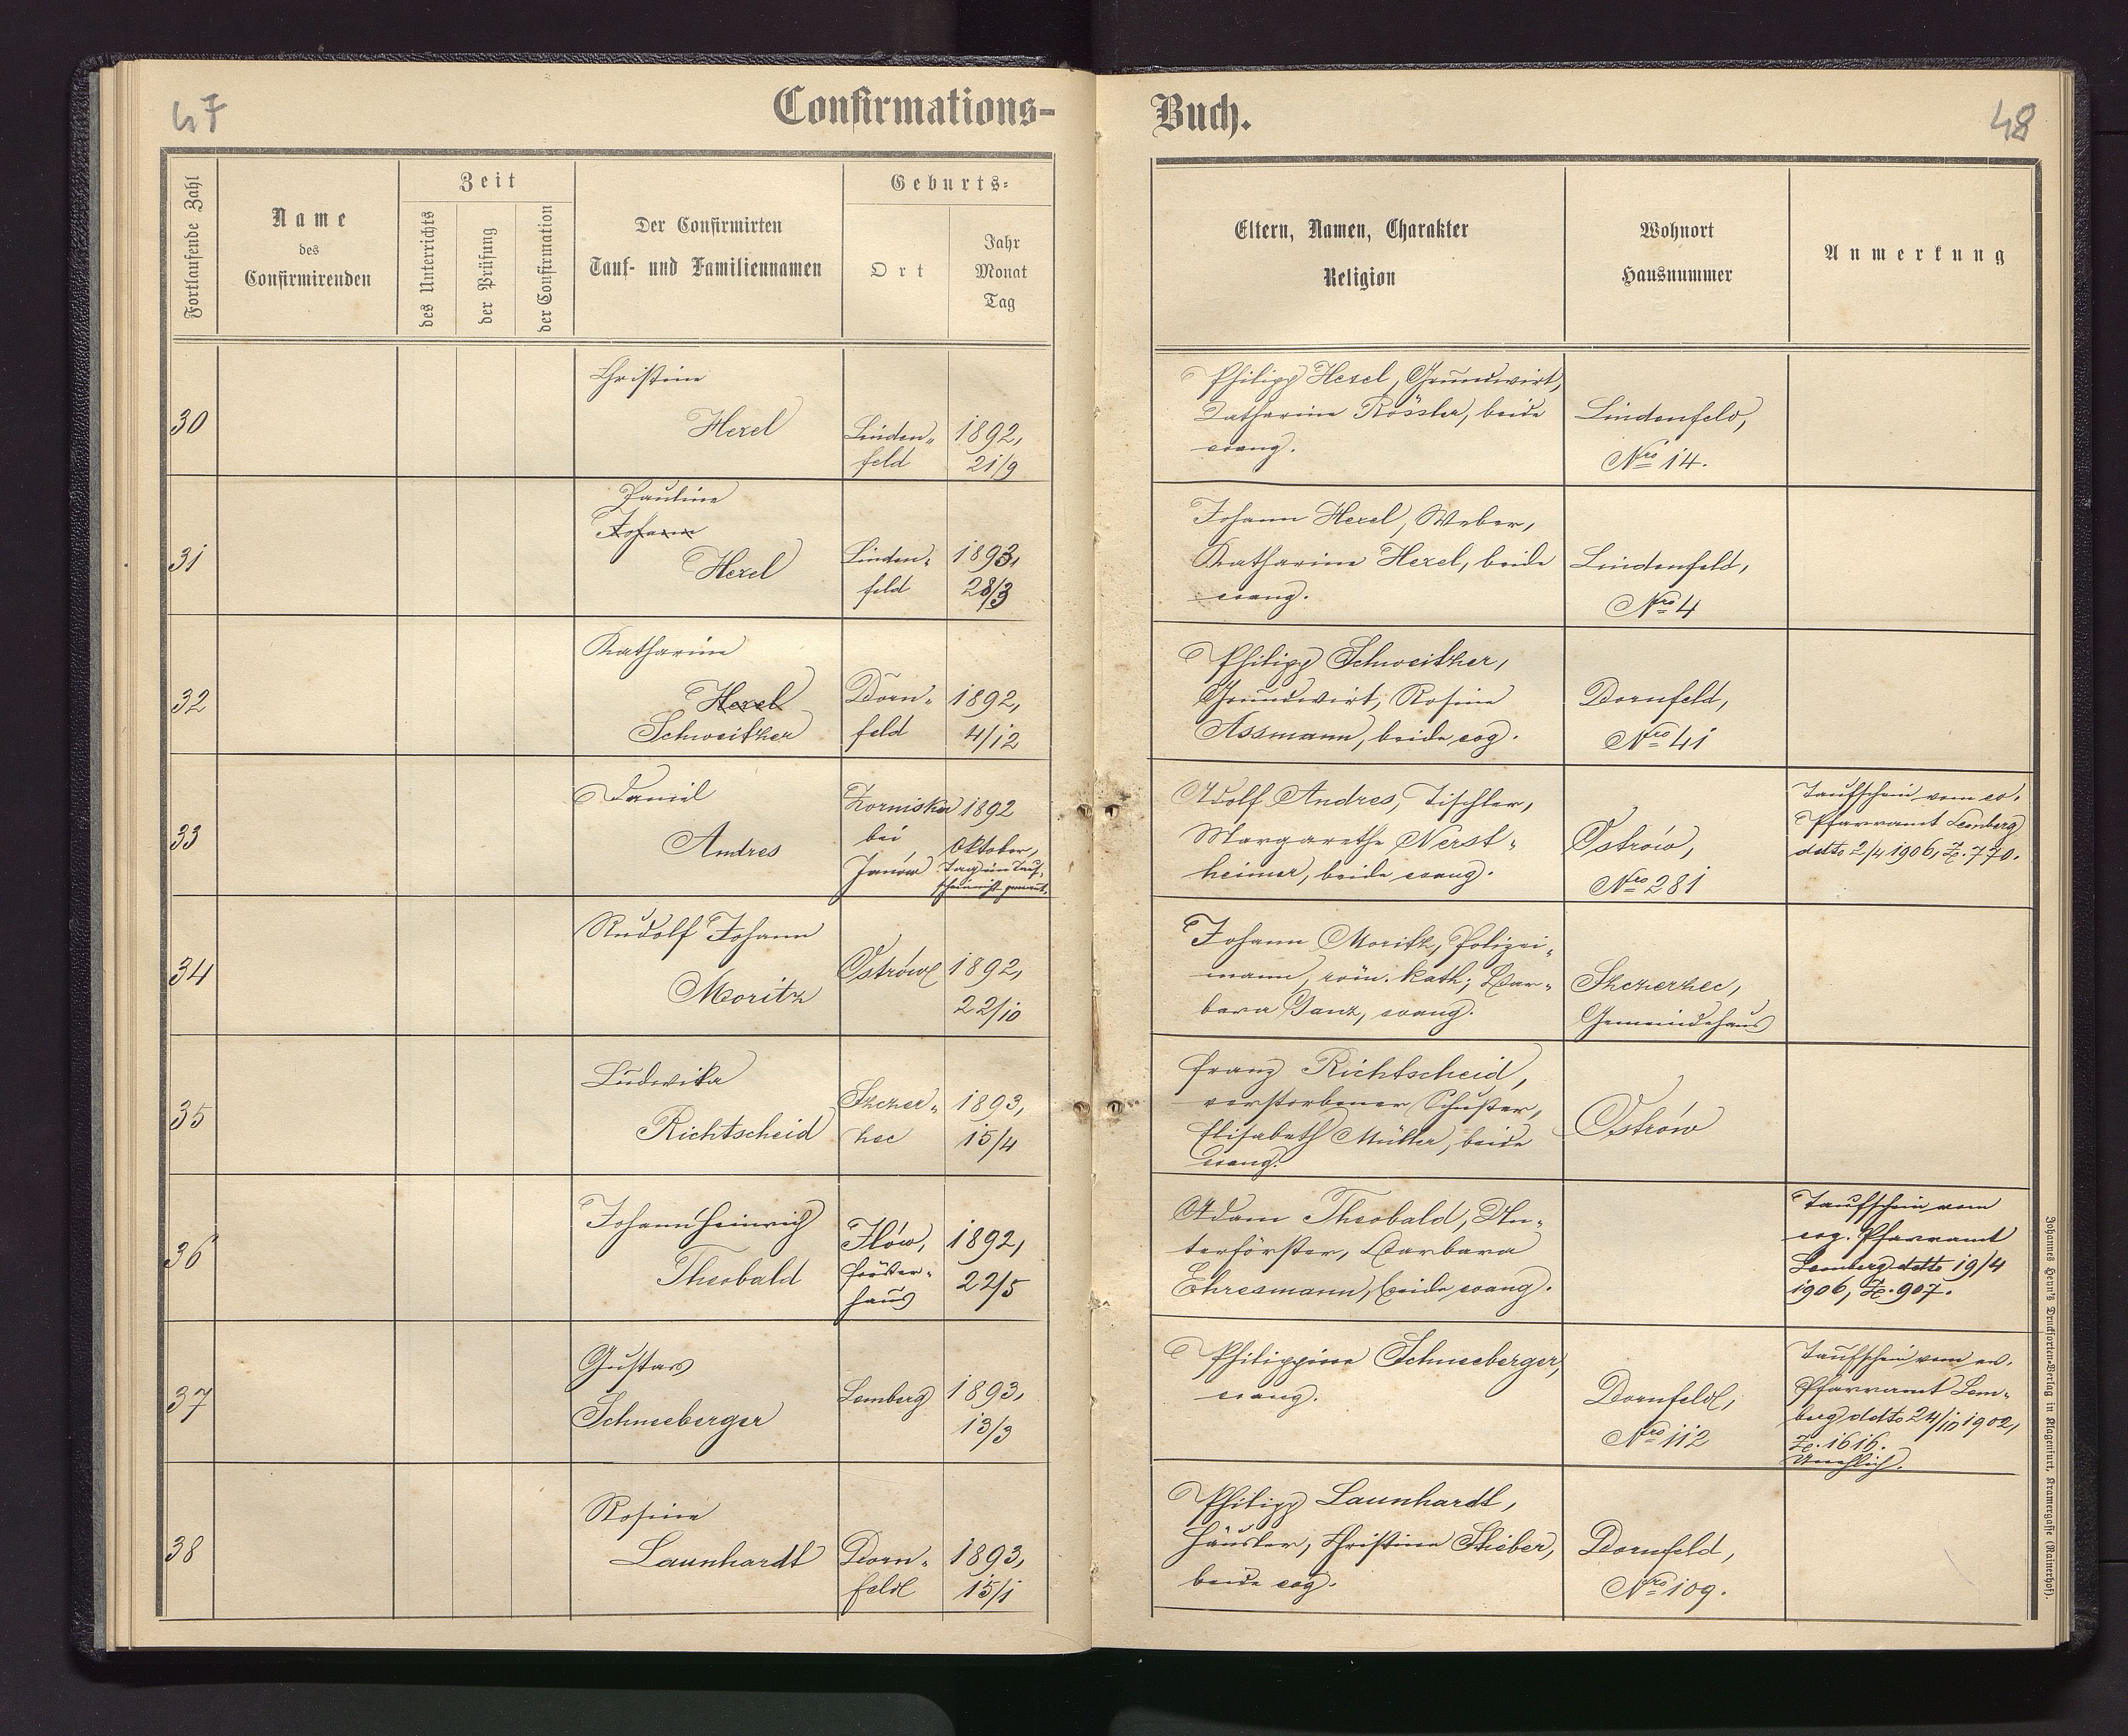 47
Confirmations-
Fortlaufende Zahl
Name
des
Confirmirenden
Zeit
des Unterrichts
der Prüfung
der Confirmation
Der Confirmirten
Tauf- und Familiennamen
Geburts-
Ort
Jahr
Monat
Tag
30
Christine
Hexel
Linden-
feld
1892,
21/9
31
Pauline
Johann
Hexel
Linden-
feld
1893,
28/3
32
Katharine
Hexel
Schweitzer
Dorn-
feld
1892,
4/12
33
Daniel
Andres
bei
Janów
1892
Oktober,
Tag im Tauf-
34
Rudolf Johann
Moritz
Ostrów
1892,
22/10
35
Ludwika
Richtscheid
Szczer-
zec
1893,
15/4
36
Johann Heinrich
Theobald
Iłów,
Förster-
haus
1892,
22/5
37
Gustav
Schneeberger
Lemberg
1893,
13/3
38
Rosine
Launhardt
Dorn-
feld
1893,
15/1
Buch.
48
Eltern, Namen, Charakter
Religion
Wohnort
Hausnummer
Anmerkung
Philipp Hexel, Grundwirt,
Katharine Rössler, beide
evang.
Lindenfeld,
Nro 14.
Johann Hexel, Weber,
Katharine Hexel, beide
evang.
Lindenfeld,
Nro 4
Philipp Schweitzer,
Grundwirt, Rosine
Assmann, beide evg.
Dornfeld,
Nro 41
Adolf Andres, Tischler,
Margarethe Nerst-
heimer, beide evang.
Ostrów,
Nro 281
Taufschein vom ev.
Pfarramt Lemberg
ddto 2/4 1906, Z. 770.
Johann Moritz, Polizei-
mann, röm. kath; Bar-
bara Ganz, evang.
Szczerzec,
Gemeindehaus
Franz Richtscheid,
verstorbener Schuster,
Elisabeth Müller, beide
evang.
Ostrów
Adam Theobald, Un-
terförster, Barbara
Ehresmann, beide evang.
Taufschein vom
evg. Pfarramt
Lemberg ddto 19/4
1906, Z. 907.
Philippine Schneeberger,
evang.
Dornfeld,
Nro 112
Taufschein vom ev.
Pfarramt Lem-
berg ddto 24/10 1902,
Z. 1616.
Unehlich.
Philipp Launhardt,
Häusler, Christine Stieber,
beide evg.
Dornfeld,
Nro 109.
Johannes Heyn's Drucksorten-Verlag in Klagenfurt, Kramergasse (Rainerhof).